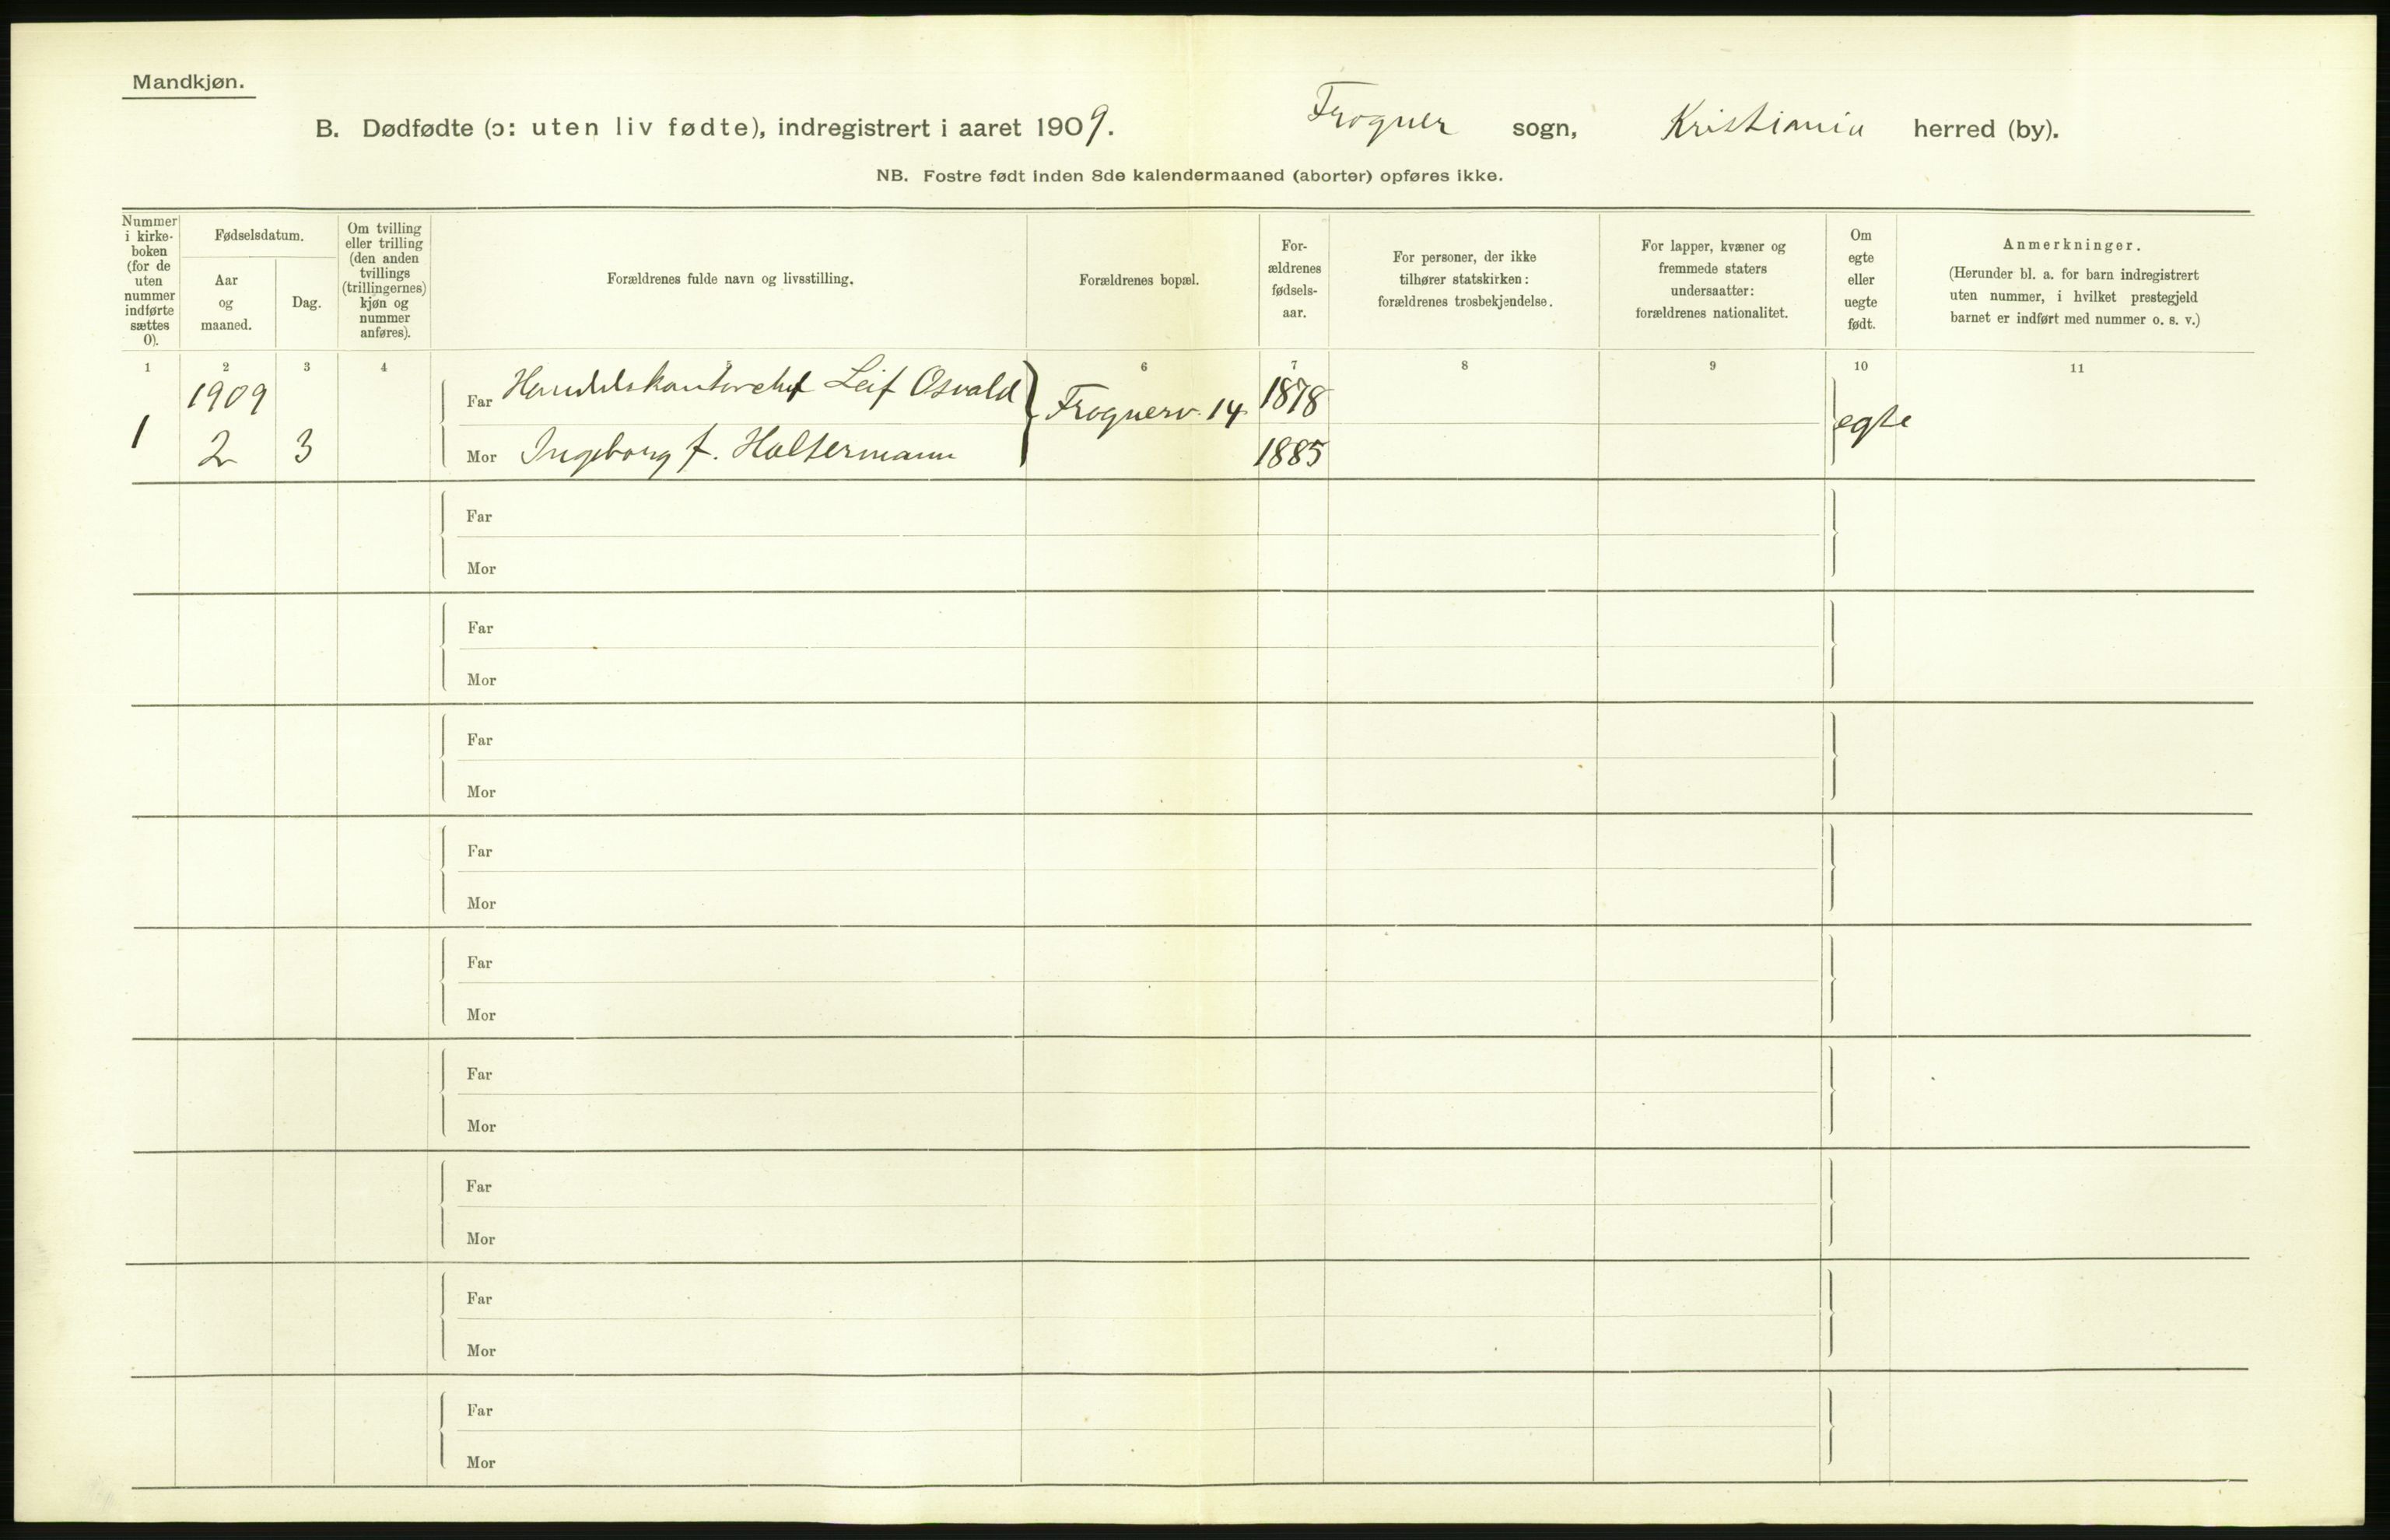 Mandkjøn.
B. Dødfødte (ɔ: uten liv fødte), indregistrert i aaret 1909. Frogner sogn, Kristiania herred (by).
NB. Fostre født inden 8de kalendermaaned (aborter) opføres ikke.
Nummer
i kirke-
boken
(for de
uten
nummer
indførte
sættes
0).
Fødselsdatum.
Aar
og
maaned.
Dag.
Om tvilling
eller trilling
(den anden
tvillings
(trillingernes)
kjøn og
nummer
anføres).
Forældrenes fulde navn og livsstilling.
Forældrenes bopæl.
For-
ældrenes
fødsels-
aar.
For personer, der ikke
tilhører statskirken:
forældrenes trosbekjendelse.
For lapper, kvæner og
fremmede staters
undersaatter:
forældrenes nationalitet.
Om
egte
eller
uegte
født.
Anmerkninger.
(Herunder bl. a. for barn indregistrert
uten nummer, i hvilket prestegjeld
barnet er indført med nummer o. s. v.)
1 2 3 4 5 6 7 8 9 10 11
1909 Far Handelskontorchef Leif Osvald Frognerv. 14 1878 egte
1 2 3 Mor Ingeborg f. Haltermann 1885
Far
Mor
Far
Mor
Far
Mor
Far
Mor
Far
Mor
Far
Mor
Far
Mor
Far
Mor
Far
Mor